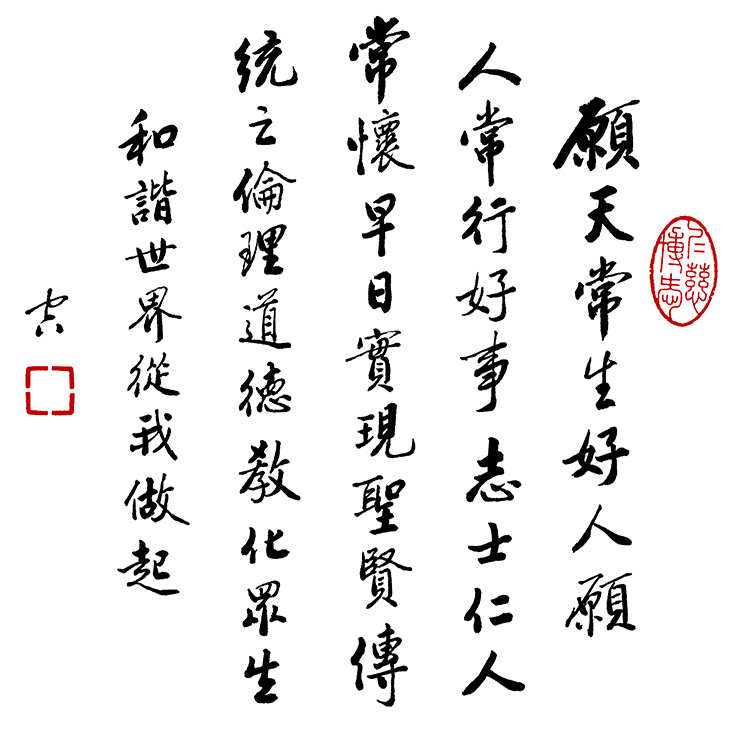 仁慈博愛
願天常生好人願
人常行好事志士仁人
常懷早日實現聖賢傳
統之倫理道德教化眾生
和諧世界從我做起
空